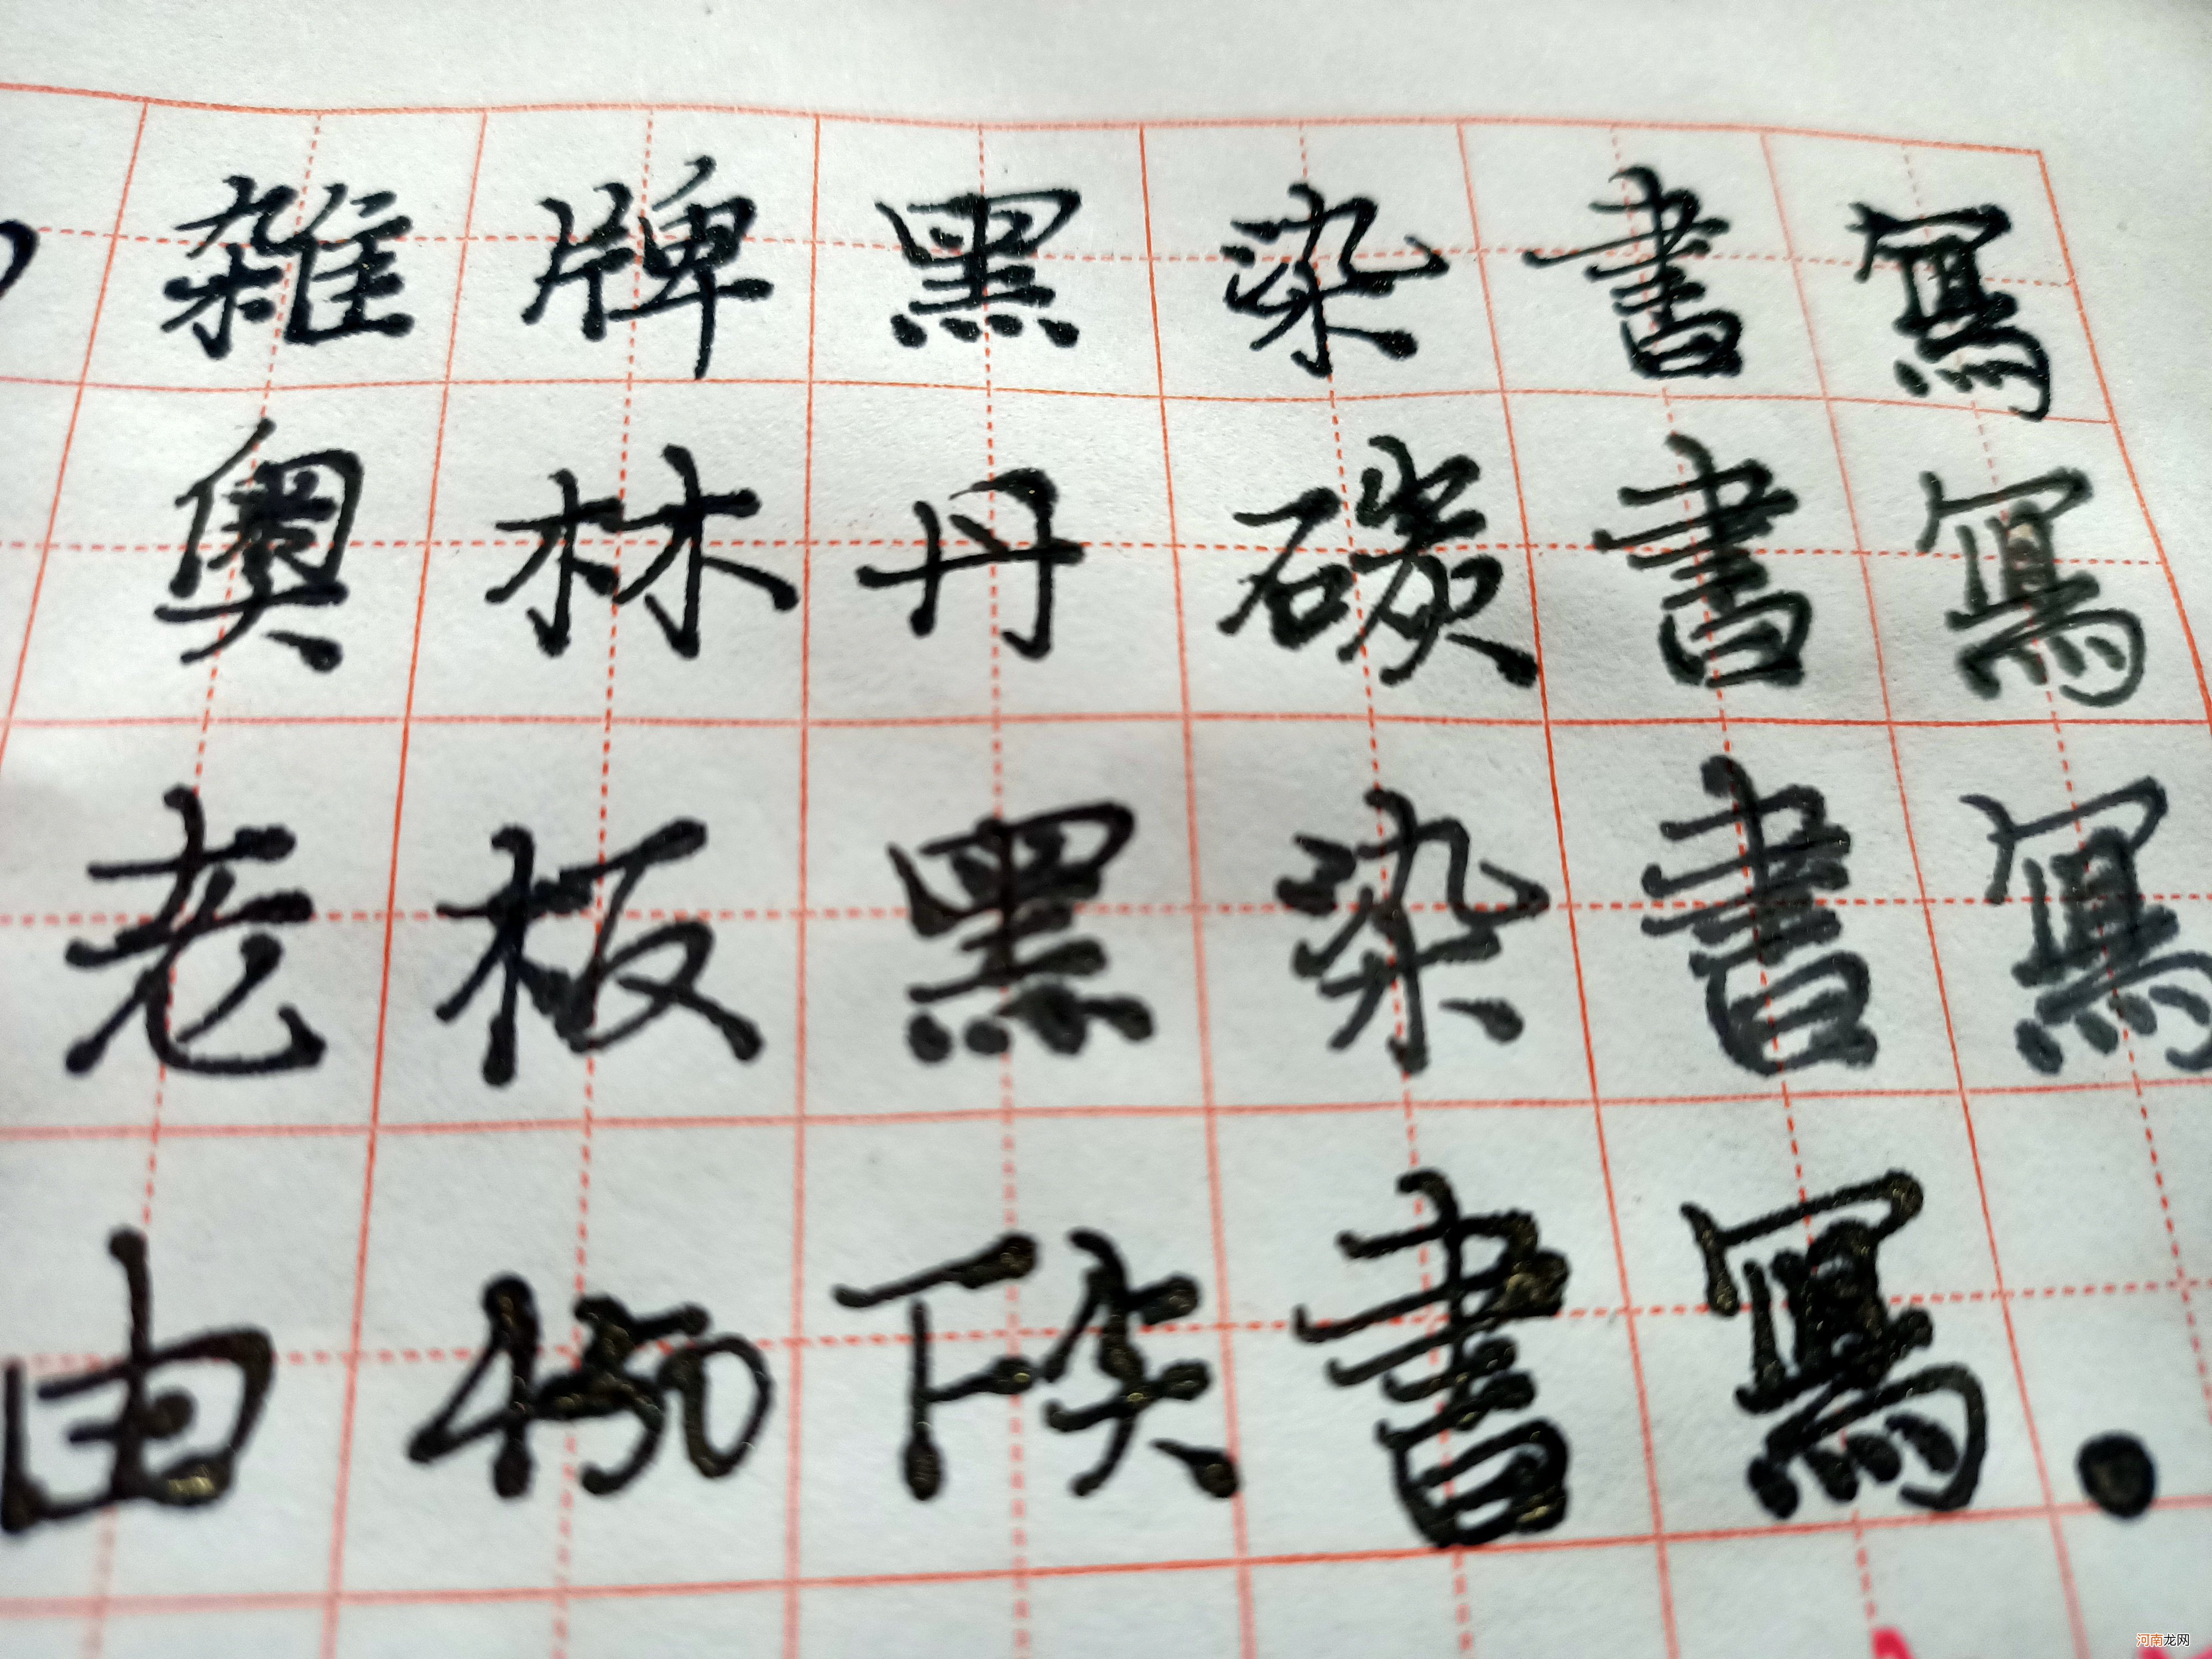 雜牌黑染書寫
奧林丹碳書寫
老板黑染書寫
由450下尖書寫.
河南龙网